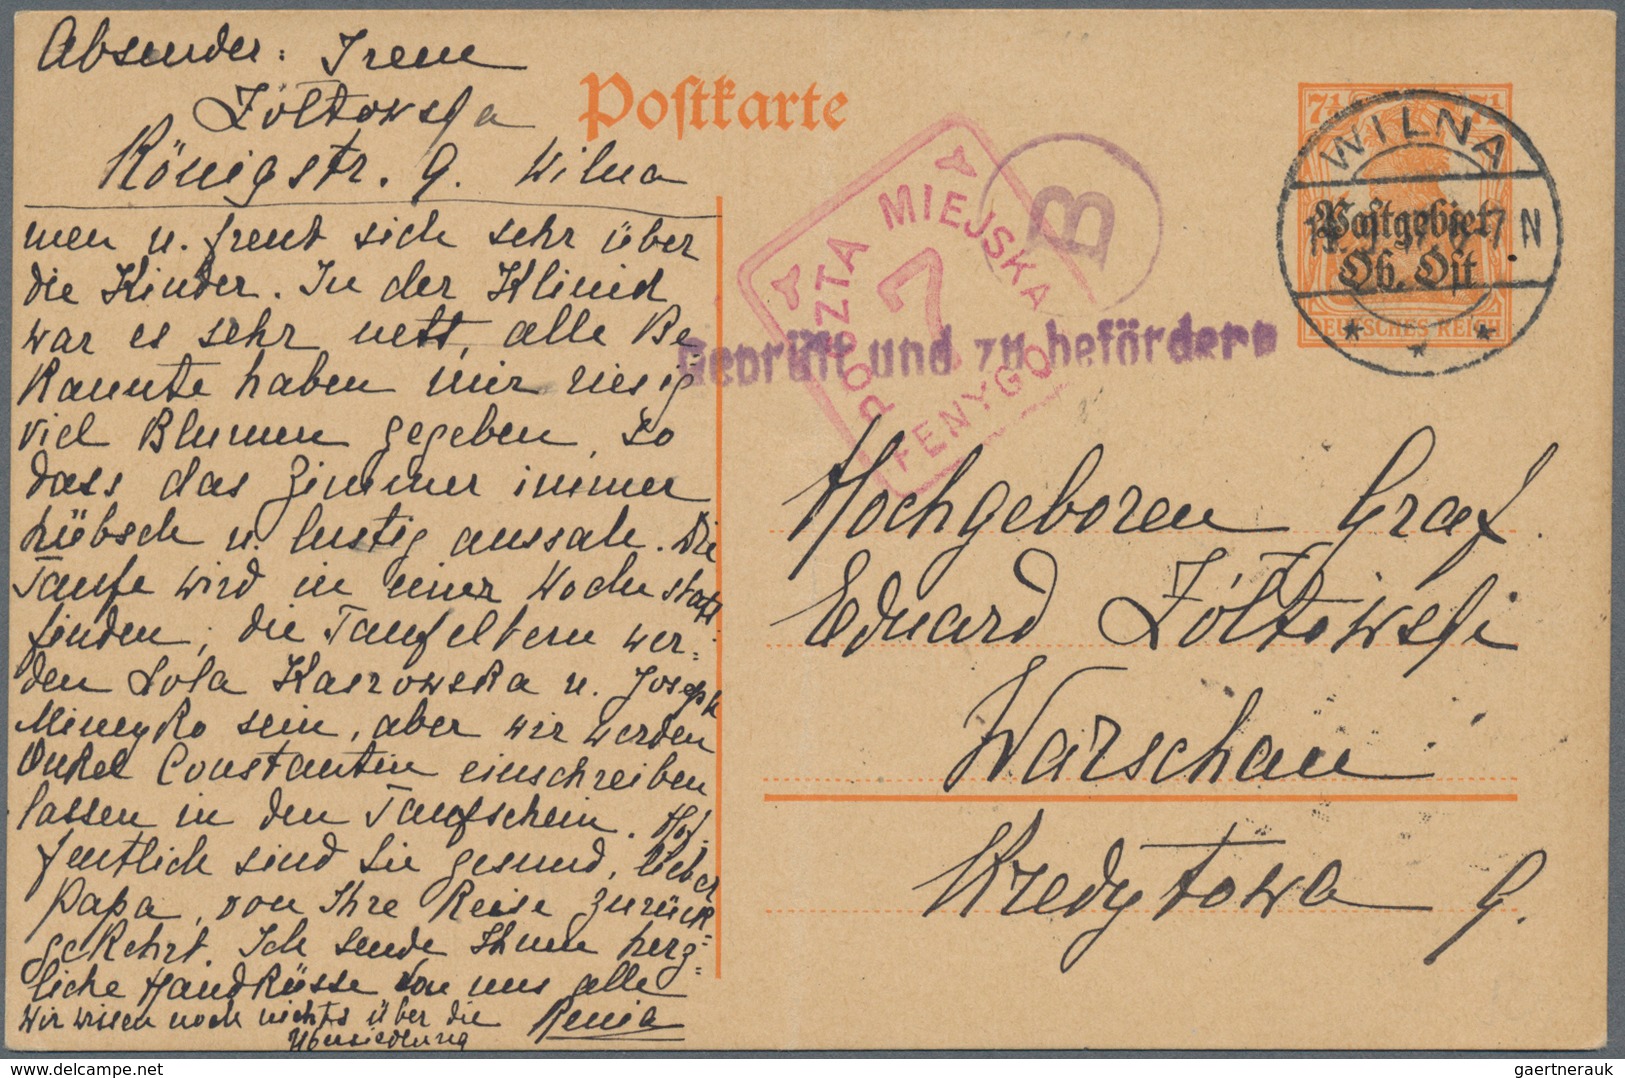 Absender: Irene
Żóltowska
Königstr. 9. Wilna
men u. freut sich sehr über
die Kinder. In der Klinik
war es sehr nett, alle Be-
kannte haben mir riesig
viel Blumen gegeben, so
dass das Zimmer immer
hübsch u. lustig aussah. Die
Taufe wird in einer Woche statt-
finden, die Taufeltern wer=
den Lola Kaszowska u. Joseph
Mineyko sein, aber wir werden
Onkel Constantin einschreiben
lassen in den Taufschein. Hof-
fentlich sind Sie gesund, lieber
Papa, von Ihre Reise zurück=
gekehrt. Ich sende Ihnen herz=
liche Handküsse von uns alle
Renia
wir wissen noch nichts über die
Übersiedlung
Postkarte
POCZTA MIEJSKA
7
FENYGÓ
B
Geprüft und zu befördern
7½ 7½
DEUTSCHES REICH
Postgebiet
Ob. Ost
WILNA
N
Hochgeboren Graf
Eduard Żóltowski
Warschau
Kredytowa 9.
gaertnerauk